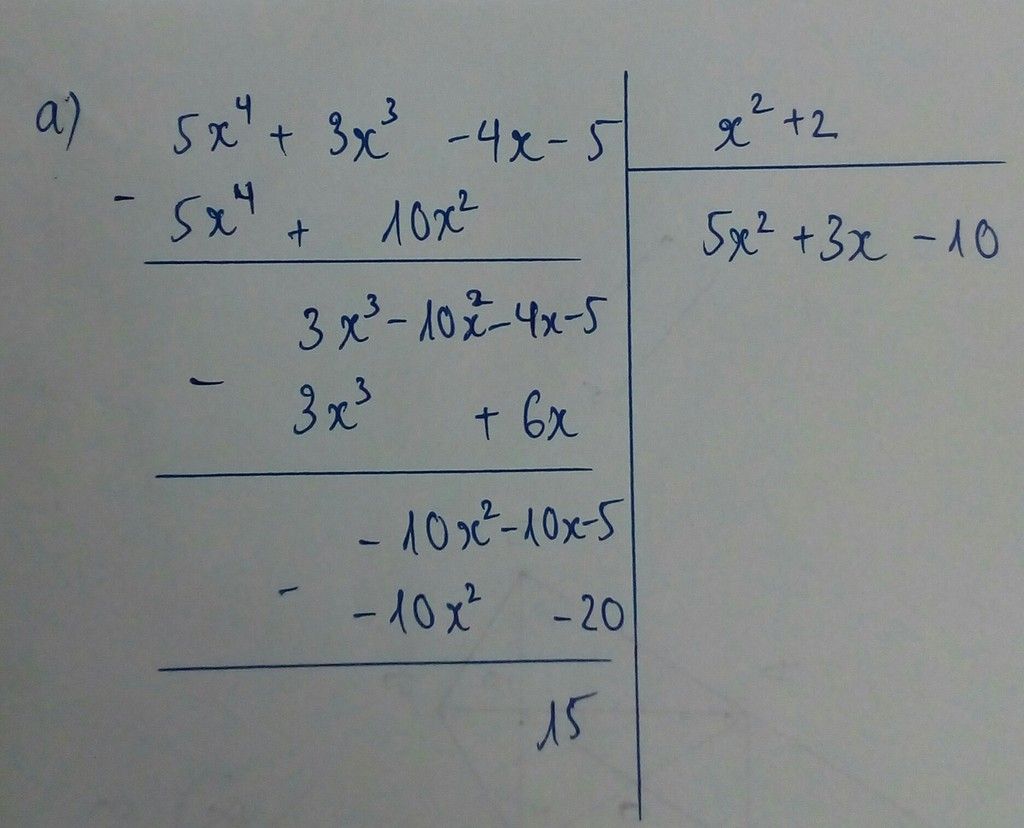 a) 5x⁴ + 3x³ -4x - 5 x² + 2
- 5x⁴ + 10x² 5x² + 3x - 10
3x³ - 10x² - 4x - 5
- 3x³ + 6x
- 10x² - 10x - 5
- - 10x² - 20
15